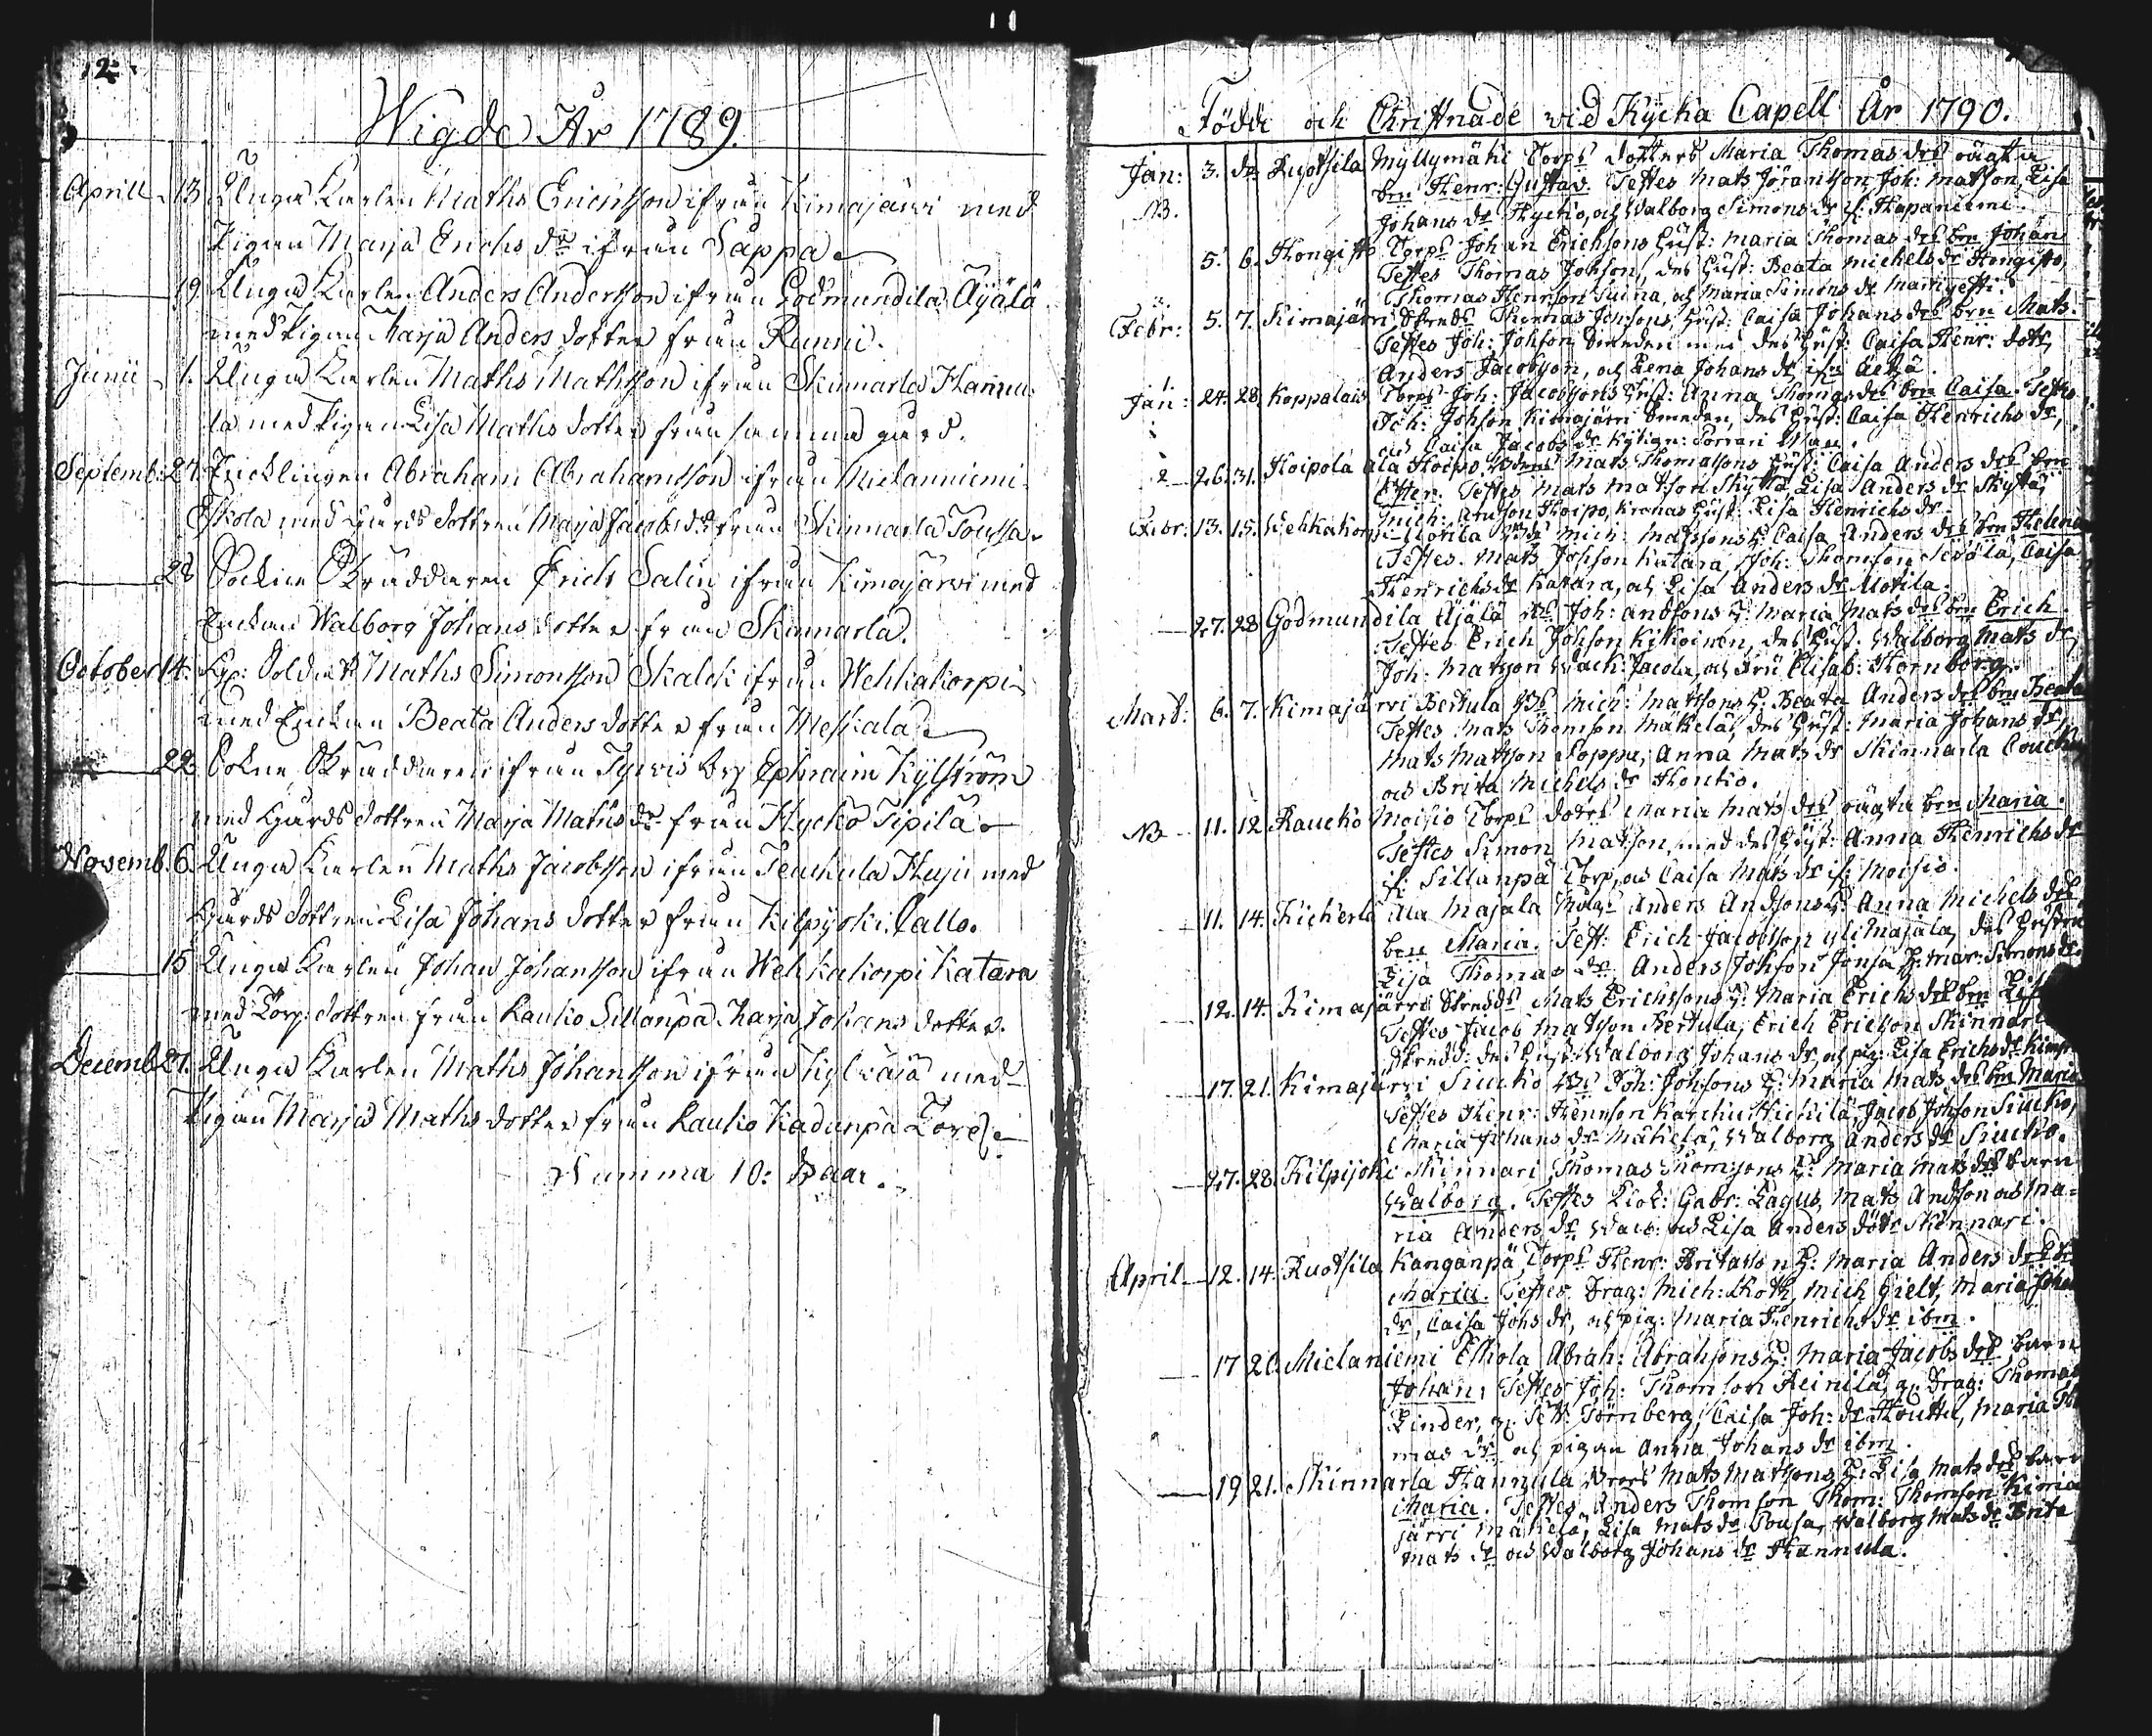 12.
Wigde År 1789.
Aprill 13 Unga Karlen Maths Erichsson ifrån Kimajärvi med
Pigan Marja Erichs dr ifrån Sappa
19. Unga Karlen Anders Andersson ifrån Godmundila Äyälä
med Pigan Marja Anders dotter från Runni.
Junii 1. Unga Karlen Maths Mathsson ifrån Skinnarla Hannu
la med Pigan Lisa Maths dotter från samma gård.
Septemb: 27. Enklingen Abraham Abrahamsson ifrån Mielanniemi
Eskola med Gårds dottren Marja Jacobs dr från Skinnarla Toussa
28 Sockne Skräddaren Erich Salin ifrån Kimajärvi med
Enkan Walborg Johans dotter från Skinnarla.
October 14. Soldat Maths Simonsson Skalck ifrån Wehkakorpi
med Enkan Beata Anders dotter från Meskala
22 Sokne Skräddaren ifrån Tyrvis Ephraim Kylström
med Gårds dottren Marja Maths dr från Kycko Sipilä
Novemb. 6. Unga Karlen Maths Jacobsson ifrån Teukula Huju med
Gårds dottren Lisa Johans dotter från Kilpijoki Callo.
15 Unga Karlen Johan Johansson ifrån Wehkakorpi Katara
med Torp: dottren från Lauko Sillanpä Marja Johans dotter.
Decemb 27. Unga Karlen Maths Johansson ifrån Kylväjä med
Pigan Marja Maths dotter från Lauko Kadunpä Torp.
Summa 10: Paar.
Födde och Christnade vid Kycka Capell År 1790.
Jan: 3. Ruotsila Myllymäki Torps dotters Maria Thomas drs oägta
NB. bn Henr: Gustav. Testes Mats Jöransson, Joh: Matsson, Lisa
Johans dr Kycko, och Walborg Simons dr if: Hapaniemi.
5. 6. Hongisto Torps Johan Erichsons Hust: Maria Thomas drs bn Johan
Testes Thomas Johson, des Hust: Beata Michels dr Hongisto,
Thomas Henrson Suina, och Maria Simons dr
Febr: 5. 7. Kimajärvi Thomas Johsons Hust: Caisa Johans drs bn Mats.
Testes Joh: Johson Smeden med des Hust: Caisa Henr: dotr,
Anders Jacobsson, och Lena Johans dr
Jan: 24. 28. Koppalais Torps Joh: Jacobssons Hust: Anna Thomas drs bn Caisa. Testes
Joh: Johson Kimajärvi Smeden, des Hust: Caisa Henrichs dr,
och Caisa Jacobs dr
26. 31. Hoipola Ala Hoipo Mats Thomassons Hust: Caisa Anders drs bn
Ester. Testes Mats Matsson Skyttä Lisa Anders dr Skyttä,
Mich: Andson Hoipo, Hust: Lisa Henrichs dr.
Febr: 13. 15. Wehkakorpi Motila Mich: Matssons H: Caisa Anders drs bn Helena
Testes. Mats Johson Katara, Joh: Thomson Caisa
Henrichs dr Katara, och Lisa Anders dr Motila.
27. 28 Godmundila Äjälä Joh: Andsons H: Maria Mats drs bn Erich.
Testes Erich Johson Kikoinen, des Hust: Walborg Mats dr,
Joh: Matsson och Fru Elisab: Hornborg.
Mart: 6. 7. Kimajärvi Bertula Mich: Matssons H: Beata Anders drs bn Beata
Testes Mats Thomson Mäkelä, des Hust: Maria Johans dr,
Mats Matsson Soppa, Anna Mats dr Skinnarla
och Brita Michels dr
NB 11. 12 Raucko Moisio Torps dotrs Maria Mats drs oägta bn Maria.
Testes Simon Matsson, med des Hust: Anna Henrichs dr
if: Sillanpä Torp, och Caisa Mats dr if: Moisio.
11. 14. Kickerlä Ala Majala Anders Andsons H: Anna Michels drs
bn Maria. Test: Erich Jacobsson ylimajala, des Hustru
Lisa Thomas dr, Anders Johson Jonsa, H: Mar: Simons dr.
12. 14. Kimajärvi Mats Erichssons H: Maria Erichs drs bn
Testes Jacob Matsson Bertula, Erich Ericsson Skinnari
des Hust: Walborg Johans dr, och pig: Lisa Erichs dr
17. 21. Kimajärvi Siucko Joh: Johsons H: Maria Mats drs bn Maria
Testes Henr: Henrson Jacob Johson Siucko,
Maria Johans dr Mäkelä, Walborg Anders dr Siucko.
27. 28. Kilpijoki Skinnari Thomas Thomsons H: Maria Mats drs barn
Walborg. Testes Gabr: Lagus, Mats Andson och Ma=
ria Anders dr och Lisa Anders dotr Skinnari.
April 12. 14. Ruotsila Kanganpä Torps Henr: H: Maria Anders dr
Maria. Testes Drag: Mich: Roth, Mich Hielt, Maria
dr, Caisa Johs dr, och pig: Maria Henrichs dr ibm.
17 20. Mielaniemi Eskola Abrah: Abrahsons H: Maria Jacobs drs barn
Johan. Testes Joh: Thomson Reinilä, Drag: Thomas
Linder, Törnberg, Caisa Joh: dr Maria
mas dr och pigan Anna Johans dr ibm.
19 21. Skinnarla Hannula Mats Matssons H: Lisa Mats drs barn
Maria. Testes Anders Thomson, Thom: Thomson Kima
järvi Mäkelä, Lisa Mats dr Tousa, Walborg Mats dr Brita
Mats dr och Walborg Johans dr Hannula.